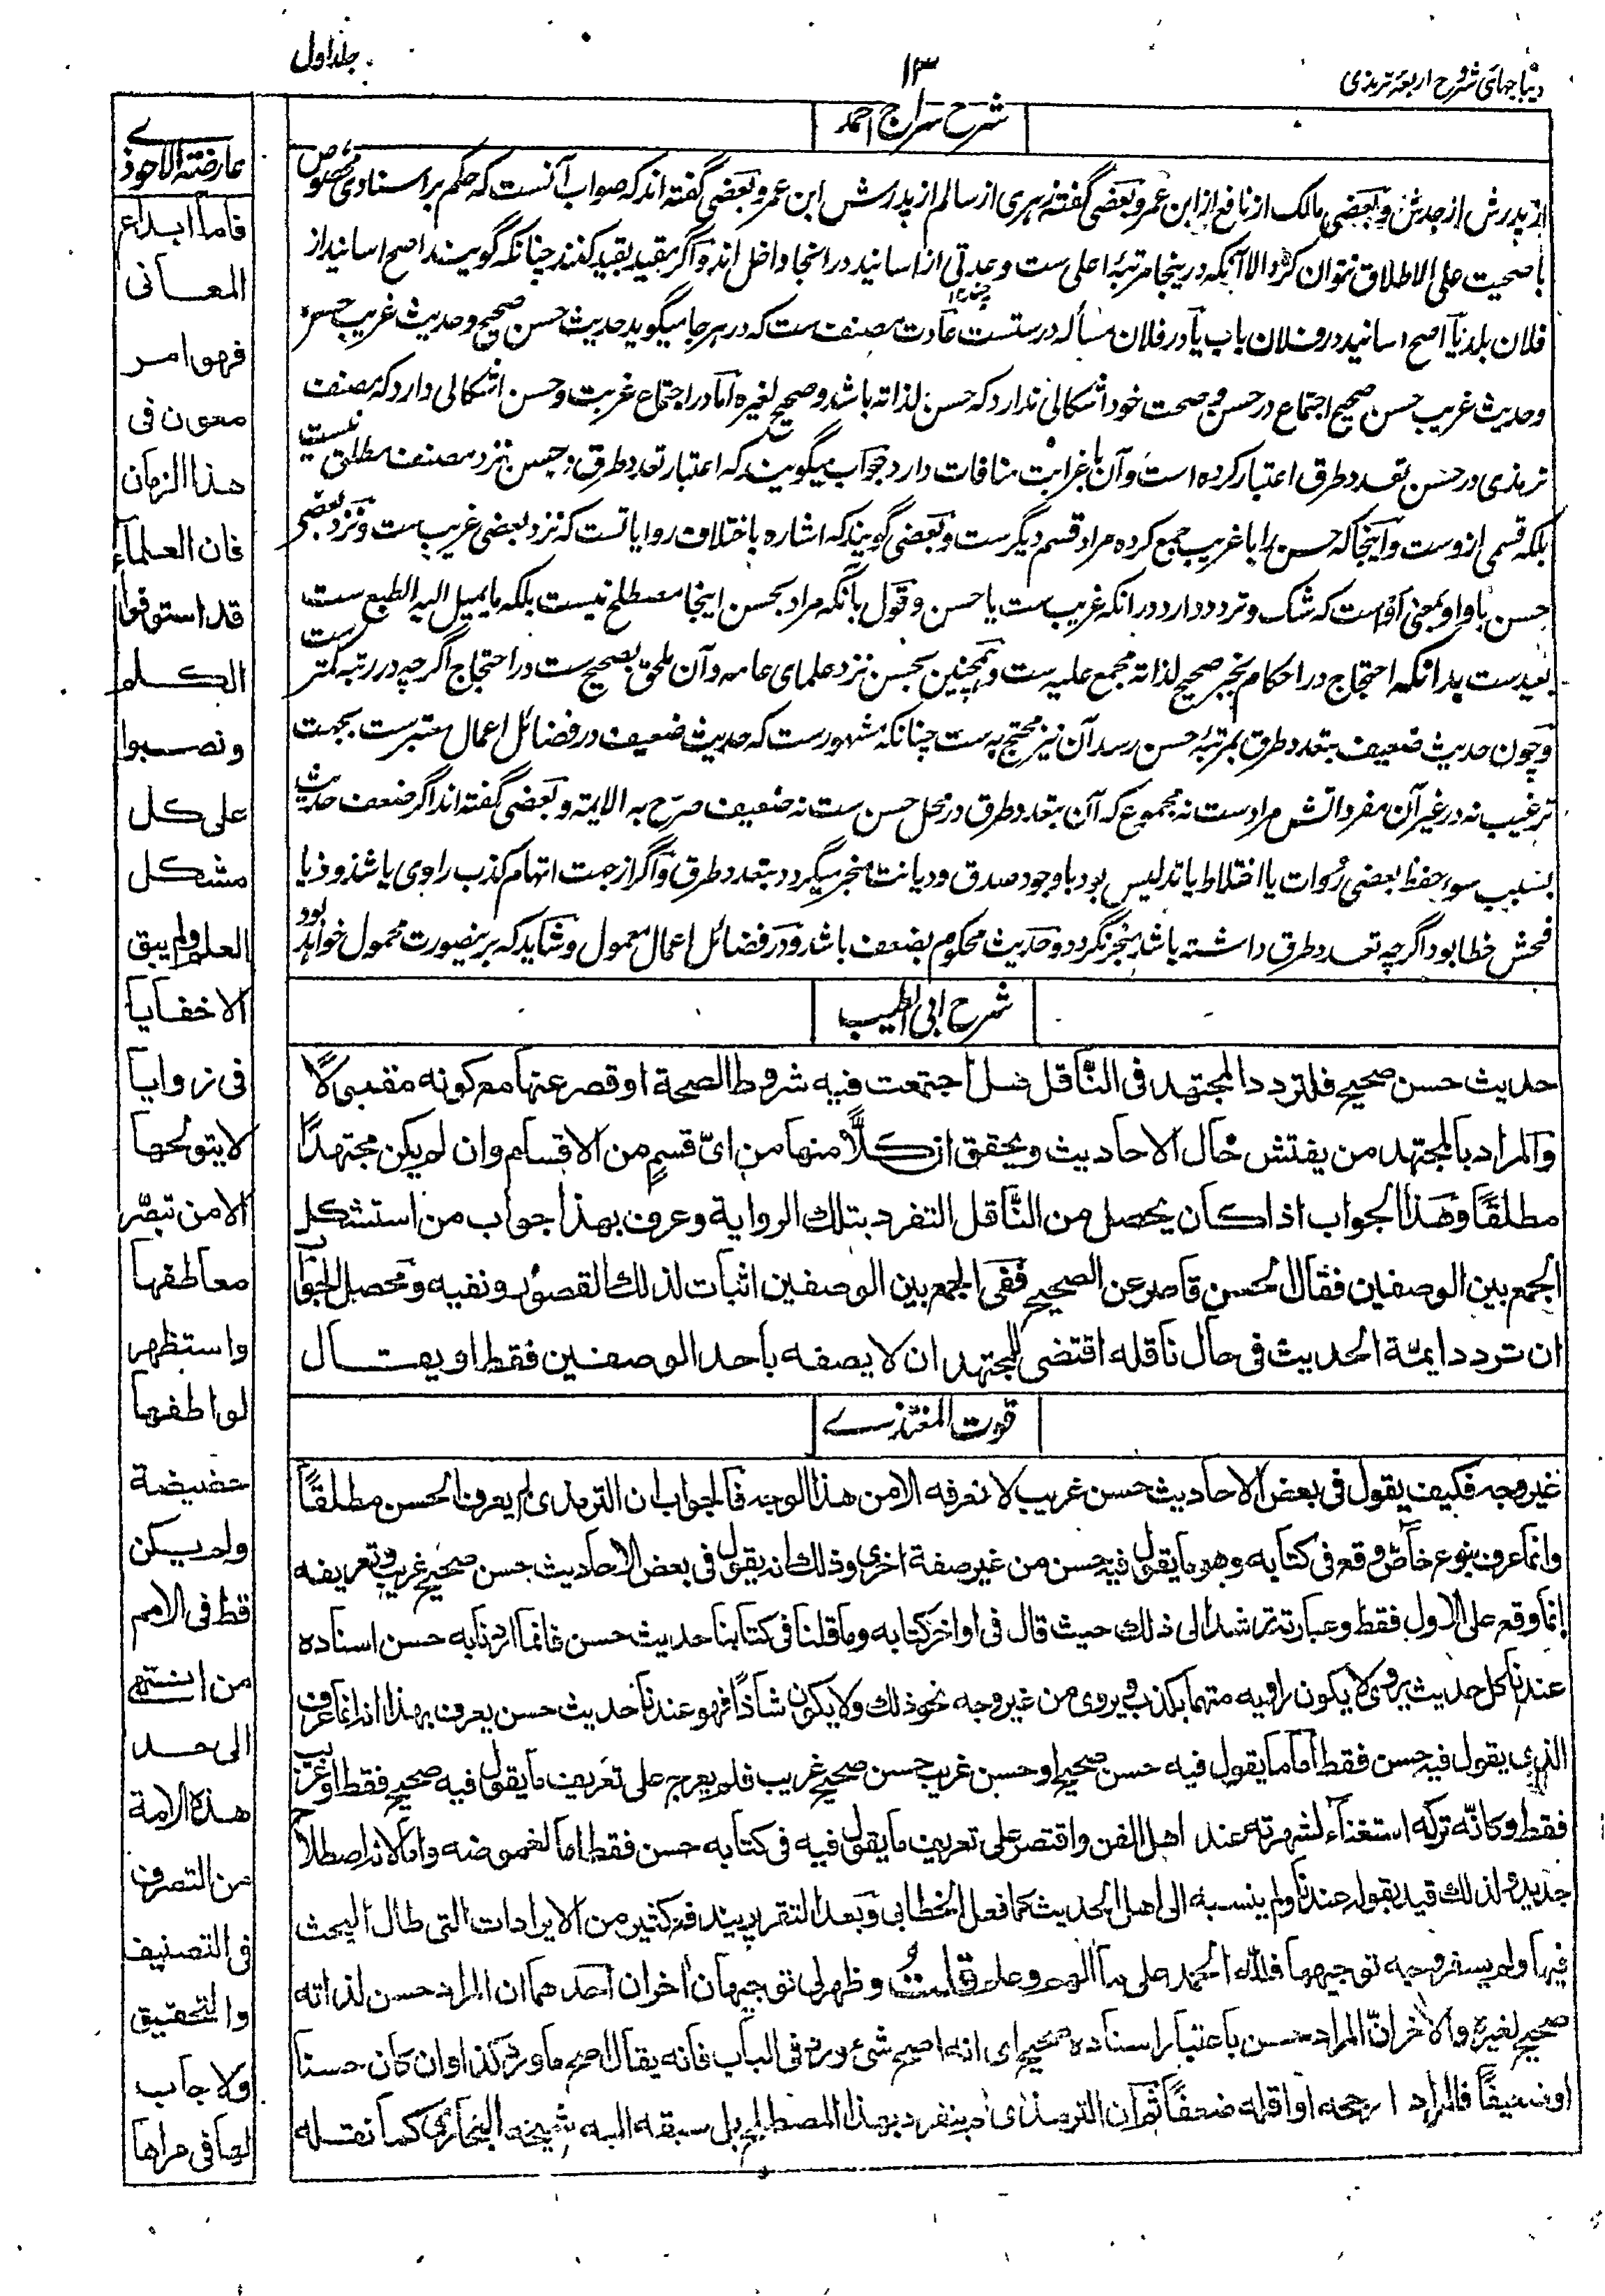 دیباجهای شروح اربعۀ ترمذی
۱۳
جلد اول
شرح سراج احمد
از پدرش از جدش و بعضی مالک از نافع از ابن عمر و بعضی گفته زهری از سالم از پدرش ابن عمر و بعضی گفته اند که صواب آنست که حکم بر اسنادی مخصوص
با صحیت علی الاطلاق نتوان کرد الا آنکه درینجا مرتبۀ اعلی ست و عدتی از اسانید در انجا داخل اند و اگر مقید بقید کنند چنانکه گویند اصح اسانید از
فلان بلد یا اصح اسانید در فلان باب یا در فلان مسأله درستست عادت مصنف ست که در هر جا میگوید حدیث حسن صحیح و حدیث غریب حسن
و حدیث غریب حسن صحیح اجتماع در حسن و صحت خود اشکالی ندارد که حسن لذاته باشد و صحیح لغیره اما در اجتماع غربت و حسن اشکالی دارد که مصنف
ترمذی در حسن تعدد طرق اعتبار کرده است و آن با غرابت منافات دارد جواب میگویند که اعتبار تعدد طرق در حسن نزد مصنف مطلق نیست
بلکه قسمی ازوست و اینجا که حسن را با غریب جمع کرده مراد قسم دیگر ست و بعضی گویند که اشاره باختلاف روایاتست که نزد بعضی غریب ست و نزد بعضی
حسن یا واو بمعنی او است که شک و تردد دارد در انکه غریب ست یا حسن و قول بآنکه مراد بحسن اینجا مصطلح نیست بلکه ما یمیل الیه الطبع ست
بعید ست بدانکه احتجاج در احکام بخبر صحیح لذاته مجمع علیه ست و همچنین بحسن نزد علمای عامه و آن ملحق بصحیح ست در احتجاج اگرچه در رتبه کمتر ست
و چون حدیث ضعیف بتعدد طرق بمرتبۀ حسن رسد آن نیز محتج به ست چنانکه مشهور ست که حدیث ضعیف در فضائل اعمال معتبر ست بجهت
ترغیب نه در غیر آن مفرداتش مراد ست نه مجموع که آن بتعدد طرق در محل حسن ست نه ضعیف صرّح به الایمة و بعضی گفته اند اگر ضعف حدیث
بسبب سوء حفظ بعضی رُوات یا اختلاط یا تدلیس بود با وجود صدق و دیانت منجبر میگردد بتعدد طرق و اگر از جهت اتهام کذب راوی یا شذوذ یا
فحش خطا بود اگرچه تعدد طرق داشته باشد منجبر نگردد و حدیث محکوم بضعف باشد و در فضائل اعمال معمول و شاید که برینصورت محمول خواهد بود
شرح ابی الطیب
حدیث حسن صحیح فلتردد المجتهد فی الناقل هل اجتمعت فیه شروط الصحة او قصر عنها مع کونه مقبولا
والمراد بالمجتهد من یفتش حال الاحادیث ویحقق ان کلًّا منها من ایّ قسمٍ من الاقسام وان لم یکن مجتهدًا
مطلقًا وهذا الجواب اذا کان یحصل من النّاقل التفرد بتلك الروایة وعرف بهذا جواب من استشکل
الجمع بین الوصفین فقال الحسن قاصر عن الصحیح ففی الجمع بین الوصفین اثبات لذلك القصور ونفیه ومحصل الجواب
ان تردد ایمّة الحدیث فی حال ناقله اقتضی للمجتهد ان لا یصفه باحد الوصفین فقط او یقال
قوت المغتذی
غیر وجه فکیف یقول فی بعض الاحادیث حسن غریب لا نعرفه الا من هذا الوجه فالجواب ان الترمذی لم یعرف الحسن مطلقًا
وانما عرف بنوع خاصّ وقع فی کتابه وهو ما یقول فیه حسن من غیر صفة اخری وذلك انه یقول فی بعض الاحادیث حسن صحیح غریب وتعریفه
انما وقع علی الاول فقط وعبارته ترشد الی ذلك حیث قال فی اواخر کتابه وما قلنا فی کتابنا حدیث حسن فانما اردنا به حسن اسناده
عندنا کل حدیث یروی لا یکون راویه متهما بکذب ویروی من غیر وجه نحو ذلك ولا یکون شاذًا فهو عندنا حدیث حسن یعرف بهذا انه انما عرف
الذی یقول فیه حسن فقط اما ما یقول فیه حسن صحیح او حسن غریب حسن صحیح غریب فلم یعرج علی تعریف ما یقول فیه صحیح فقط او غریب
فقط وکانّه ترکه استغناءً لشهرته عند اهل الفن واقتصر علی تعریف ما یقول فیه فی کتابه حسن فقط اما لغموضه واما لانه اصطلاح
جدید ولذلك قید بقوله عندنا ولم ینسبه الی اهل الحدیث کما فعل الخطابی وبعد التقریر یندفع کثیر من الایرادات التی طال البحث
فیها ولم یسفر وجه توجیهها فلله الحمد علی ما الهم وعلم قلت وظهر لی توجیهان اخران احدهما ان المراد حسن لذاته
صحیح لغیره والاخر انّ المراد حسن باعتبار اسناده صحیح ای انه اصح شیء ورد فی الباب فانه یقال اصح ما ورد کذا وان کان حسنا
او ضعیفًا فالمراد ارجحه او اقله ضعفًا ثم ان الترمذی لم ینفرد بهذا المصطلح بل سبقه الیه شیخه البخاری کما نقله
عارضة الاحوذی
فاما ابداع
المعانی
فهو امر
معون فی
هذا الزمان
فان العلماء
قد استوفوا
الکلم
ونصبوا
علی کل
مشکل
العلم ولم یبق
الا خفایا
فی زوایا
لا یتولجها
الا من تبصّر
معاطفها
واستظهر
لواطفها
حضیضة
ولم یکن
قط فی الامم
من انتهی
الی حد
هذه الامة
من التصرف
فی التصنیف
والتحقیق
ولا جاب
لها فی مراها